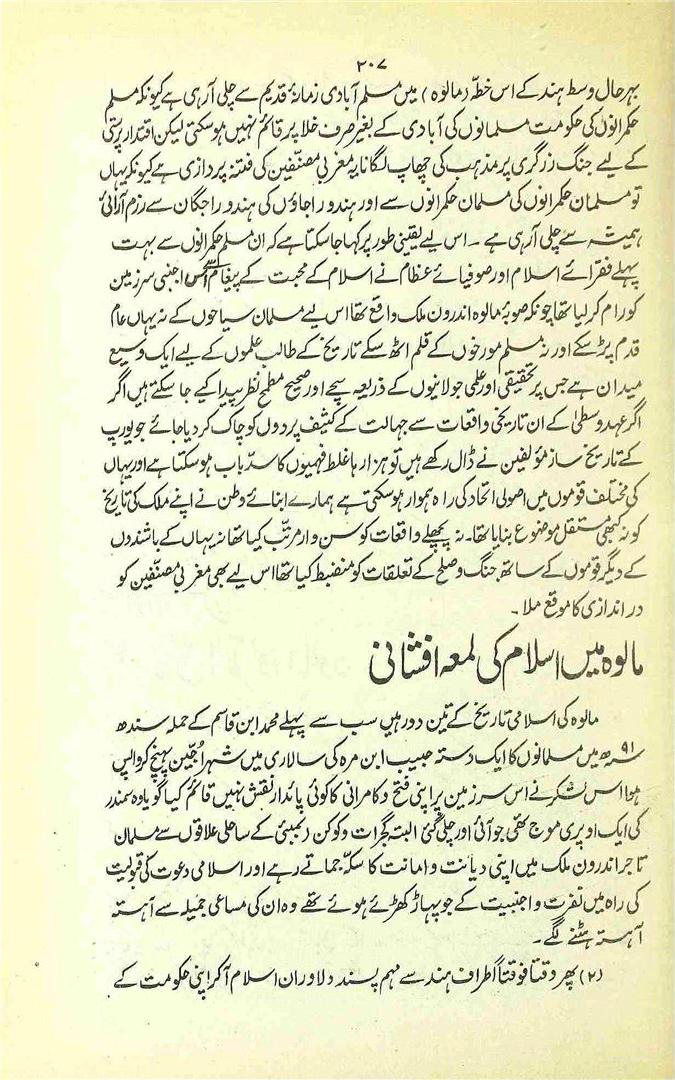 ۲۰۷
بہرحال وسط ہند کے اس خطّہ (مالوہ) میں مسلم آبادی زمانۂ قدیم سے چلی آرہی ہے کیونکہ مسلم
حکمرانوں کی حکومت مسلمانوں کی آبادی کے بغیر صرف خلا پر قائم نہیں ہوسکتی لیکن اقتدار پرستی
کے لیے جنگ زرگری پر مذہب کی چھاپ لگانا یہ مغربی مصنّفین کی فتنہ پردازی ہے کیونکہ یہاں
تو مسلمان حکمرانوں کی مسلمان حکمرانوں سے اور ہندو راجاؤں کی ہندو راجگان سے رزم آرائی
ہمیشہ سے چلی آرہی ہے ۔ اس لیے یقینی طور پر کہا جاسکتا ہے کہ ان مسلم حکمرانوں سے بہت
پہلے فقرائے اسلام اور صوفیائے عظام نے اسلام کے محبت کے پیغام سے اس اجنبی سرزمین
کو رام کرلیا تھا چونکہ صوبۂ مالوہ اندرون ملک واقع تھا اس لیے مسلمان سیاحوں کے نہ یہاں عام
قدم پڑسکے اور نہ مسلم مورخوں کے قلم اٹھ سکے تاریخ کے طالب علموں کے لیے ایک وسیع
میدان ہے جس پر تحقیقی اور علمی جولانیوں کے ذریعہ سچے اور صحیح مطمح نظر پیدا کیے جاسکتے ہیں اگر
اگر عہد وسطیٰ کے ان تاریخی واقعات سے جہالت کے کثیف پردوں کو چاک کردیا جائے جو یورپ
کے تاریخ ساز مؤلفین نے ڈال رکھے ہیں تو ہزارہا غلط فہمیوں کا سدّباب ہوسکتا ہے اور یہاں
کی مختلف قوموں میں اصولی اتحاد کی راہ ہموار ہوسکتی ہے ہمارے ابنائے وطن نے اپنے ملک کی تاریخ
کو نہ کبھی مستقل موضوع بنایا تھا۔ نہ پچھلے واقعات کو سن وار مرتّب کیا تھا نہ یہاں کے باشندوں
کے دیگر قوموں کے ساتھ جنگ و صلح کے تعلقات کو منضبط کیا تھا اس لیے بھی مغربی مصنّفین کو
در اندازی کا موقع ملا ۔
مالوہ میں اسلام کی لمعہ افشانی
مالوہ کی اسلامی تاریخ کے تین دور ہیں سب سے پہلے محمد ابن قاسم کے حملہ سندھ
۹۱ھ میں مسلمانوں کا ایک دستہ حبیب ابن مرہ کی سالاری میں شہر اُجین پہنچ کر واپس
ہوا اس لشکر نے اس سرزمین پر اپنی فتح و کامرانی کا کوئی پائدار نقش نہیں قائم کیا گویا وہ سمندر
کی ایک اوپری موج تھی جو آئی اور چلی گئی البتہ گجرات و کوکن (بمبئی) کے ساحلی علاقوں سے مسلمان
تاجر اندرون ملک میں اپنی دیانت و امانت کا سکّہ جماتے رہے اور اسلامی دعوت کی قبولیت
کی راہ میں نفرت و اجنبیت کے جو پہاڑ کھڑئے ہوئے تھے وہ ان کی مساعی جمیلہ سے آہستہ
آہستہ ہٹنے لگے ۔
(۲) پھر وقتاً فوقتاً اطراف ہند سے مہم پسند دلاوران اسلام آکر اپنی حکومت کے